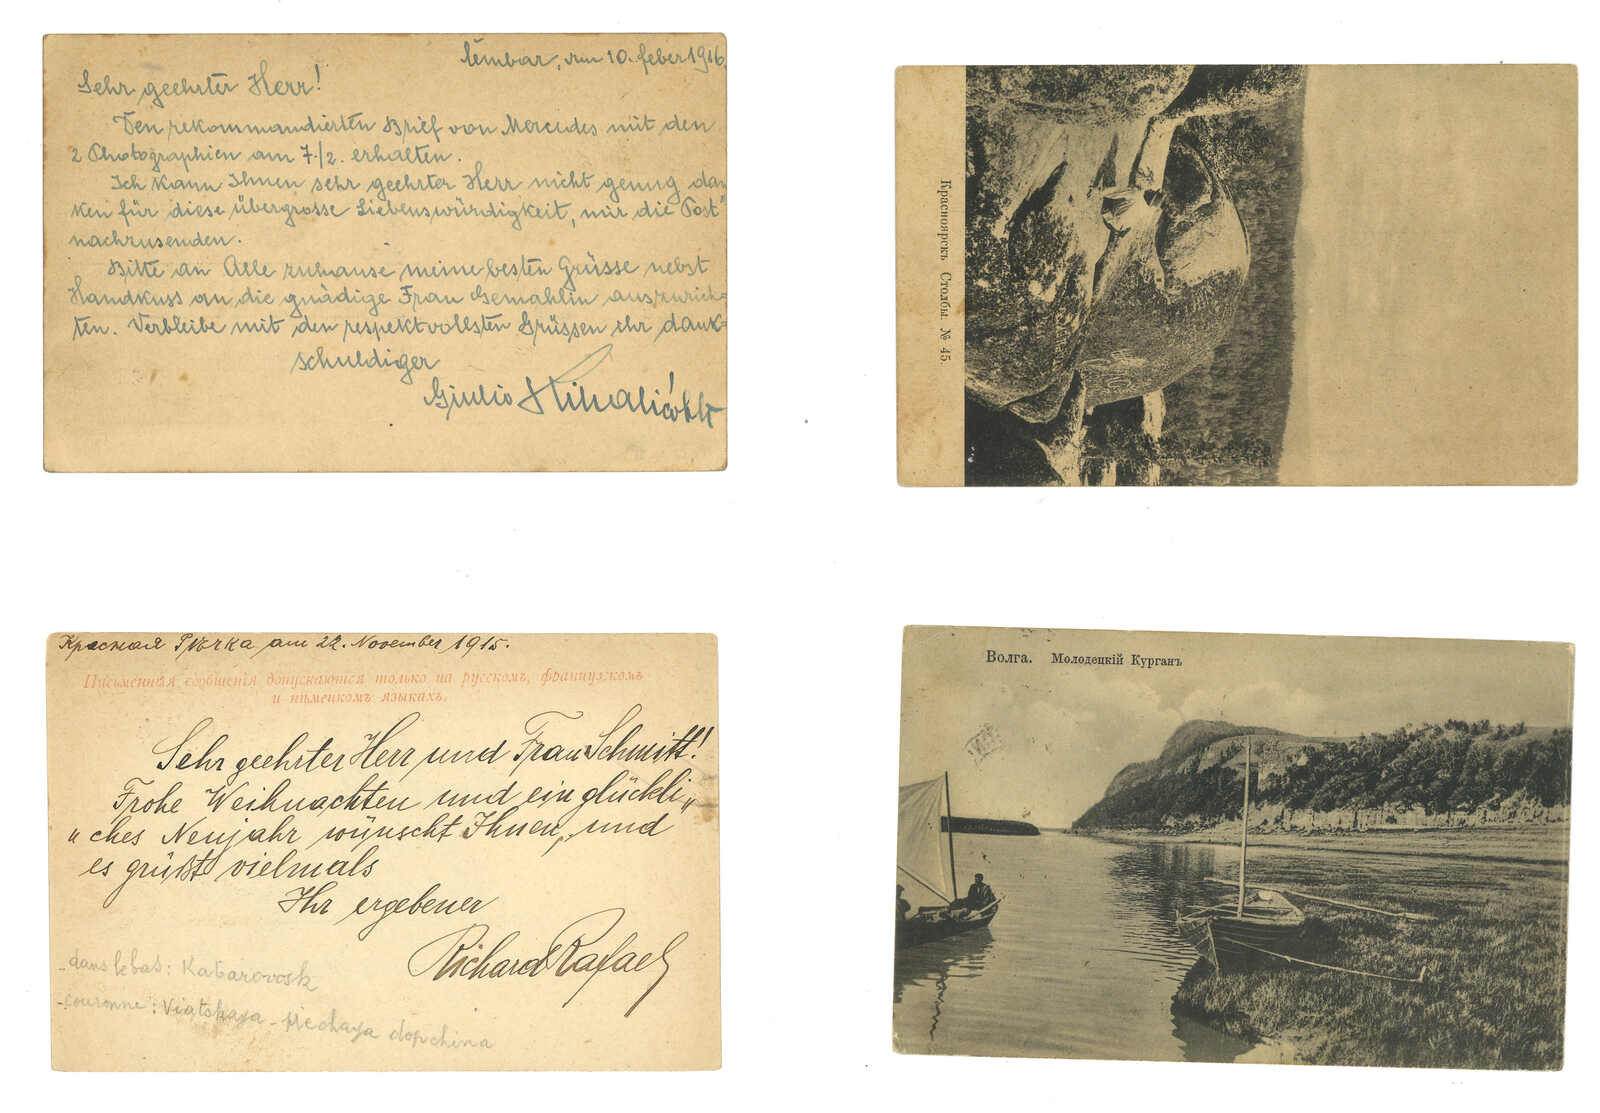 Čembar, am 10. feber 1916.
Sehr geehrter Herr!
Den rekommandierten Brief von Mercedes mit den
2 Photographien am 7./2. erhalten.
Ich kann Ihnen sehr geehrter Herr nicht genug dan
ken für diese übergrosse Liebenswürdigkeit, mir die Post"
nachzusenden.
Bitte an Alle zuhause meine besten Grüsse nebst
Handkuss an die gnädige Frau Gemahlin auszurich=
ten. Verbleibe mit den respektvollsten Grüssen ihr dank=
schuldiger
Giulio
Красноярскъ Столбы. № 45.
Красная Рѣчка am 22. November 1915.
Письменныя сообщенія допускаются только на русскомъ, французскомъ
и нѣмецкомъ языкахъ.
Sehr geehrter Herr und Frau Schmitt!
Frohe Weihnachten und ein glückli„
"ches Neujahr wünscht Ihnen, und
es grüßt vielmals
Ihr ergebener
Richard Rafael
- dans le bas: Kabarovosk
- couronne: Viatskaya - piechaya dopchina
Волга. Молодецкій Курганъ